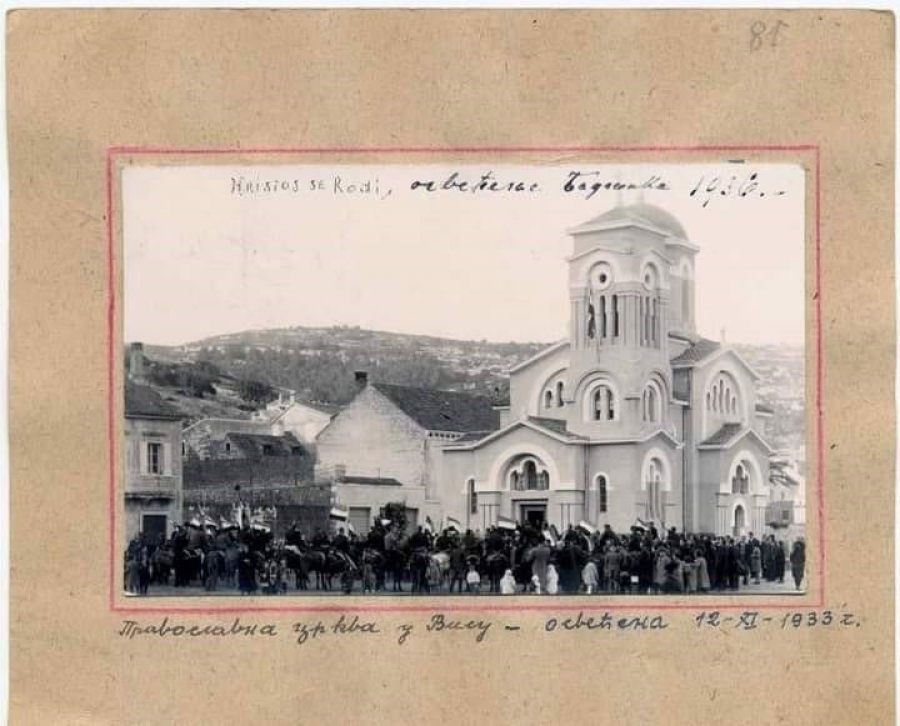 18
Hristos se Rodi, освећење Бадњака 1936.-
Православна црква у Вису – освећена 12-XI-1933 г.